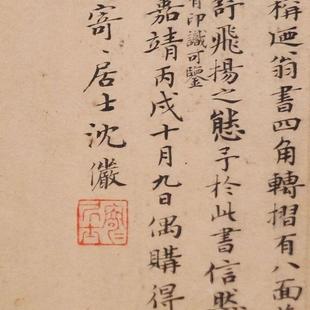 稱迺翁書四角轉摺有八面
舒飛揚之態予於此書信然
有印識可鑒
嘉靖丙戌十月九日偶購得
寄〻居士沈巖